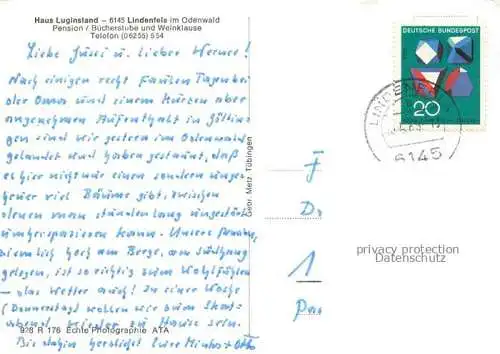 Haus Luginsland — 6145 Lindenfels im Odenwald
Pension / Bücherstube und Weinklause
Telefon (06255) 554
Liebe Susei u. lieber Werner!
Nach einigen recht faulen Tagen bei
der Oma und einem kurzen aber
angenehmen Aufenthalt in Göttin-
gen sind wir gestern im Odenwald
gelandet und haben gestaunt, daß
es hier nicht nur einen sondern unge-
heuer viel Bäume gibt, zwischen
denen man stundenlang ungestört
umherspazieren kann. Unsere Pension,
ziemlich hoch am Berge, am Südhang
gelegen, ist so richtig zum Wohlfühlen
- das Wetter auch! In einer Woche
(Donnerstag) wollen wir zum
abend wieder zu Hause sein.
Bis dahin herzlichst Eure + Otto
928 R 176 Echte Photographie ATA
Gebr. Metz Tübingen
DEUTSCHE BUNDESPOST
20
LINDENFELS
6145
F
Dr
1
privacy protection
Datenschutz